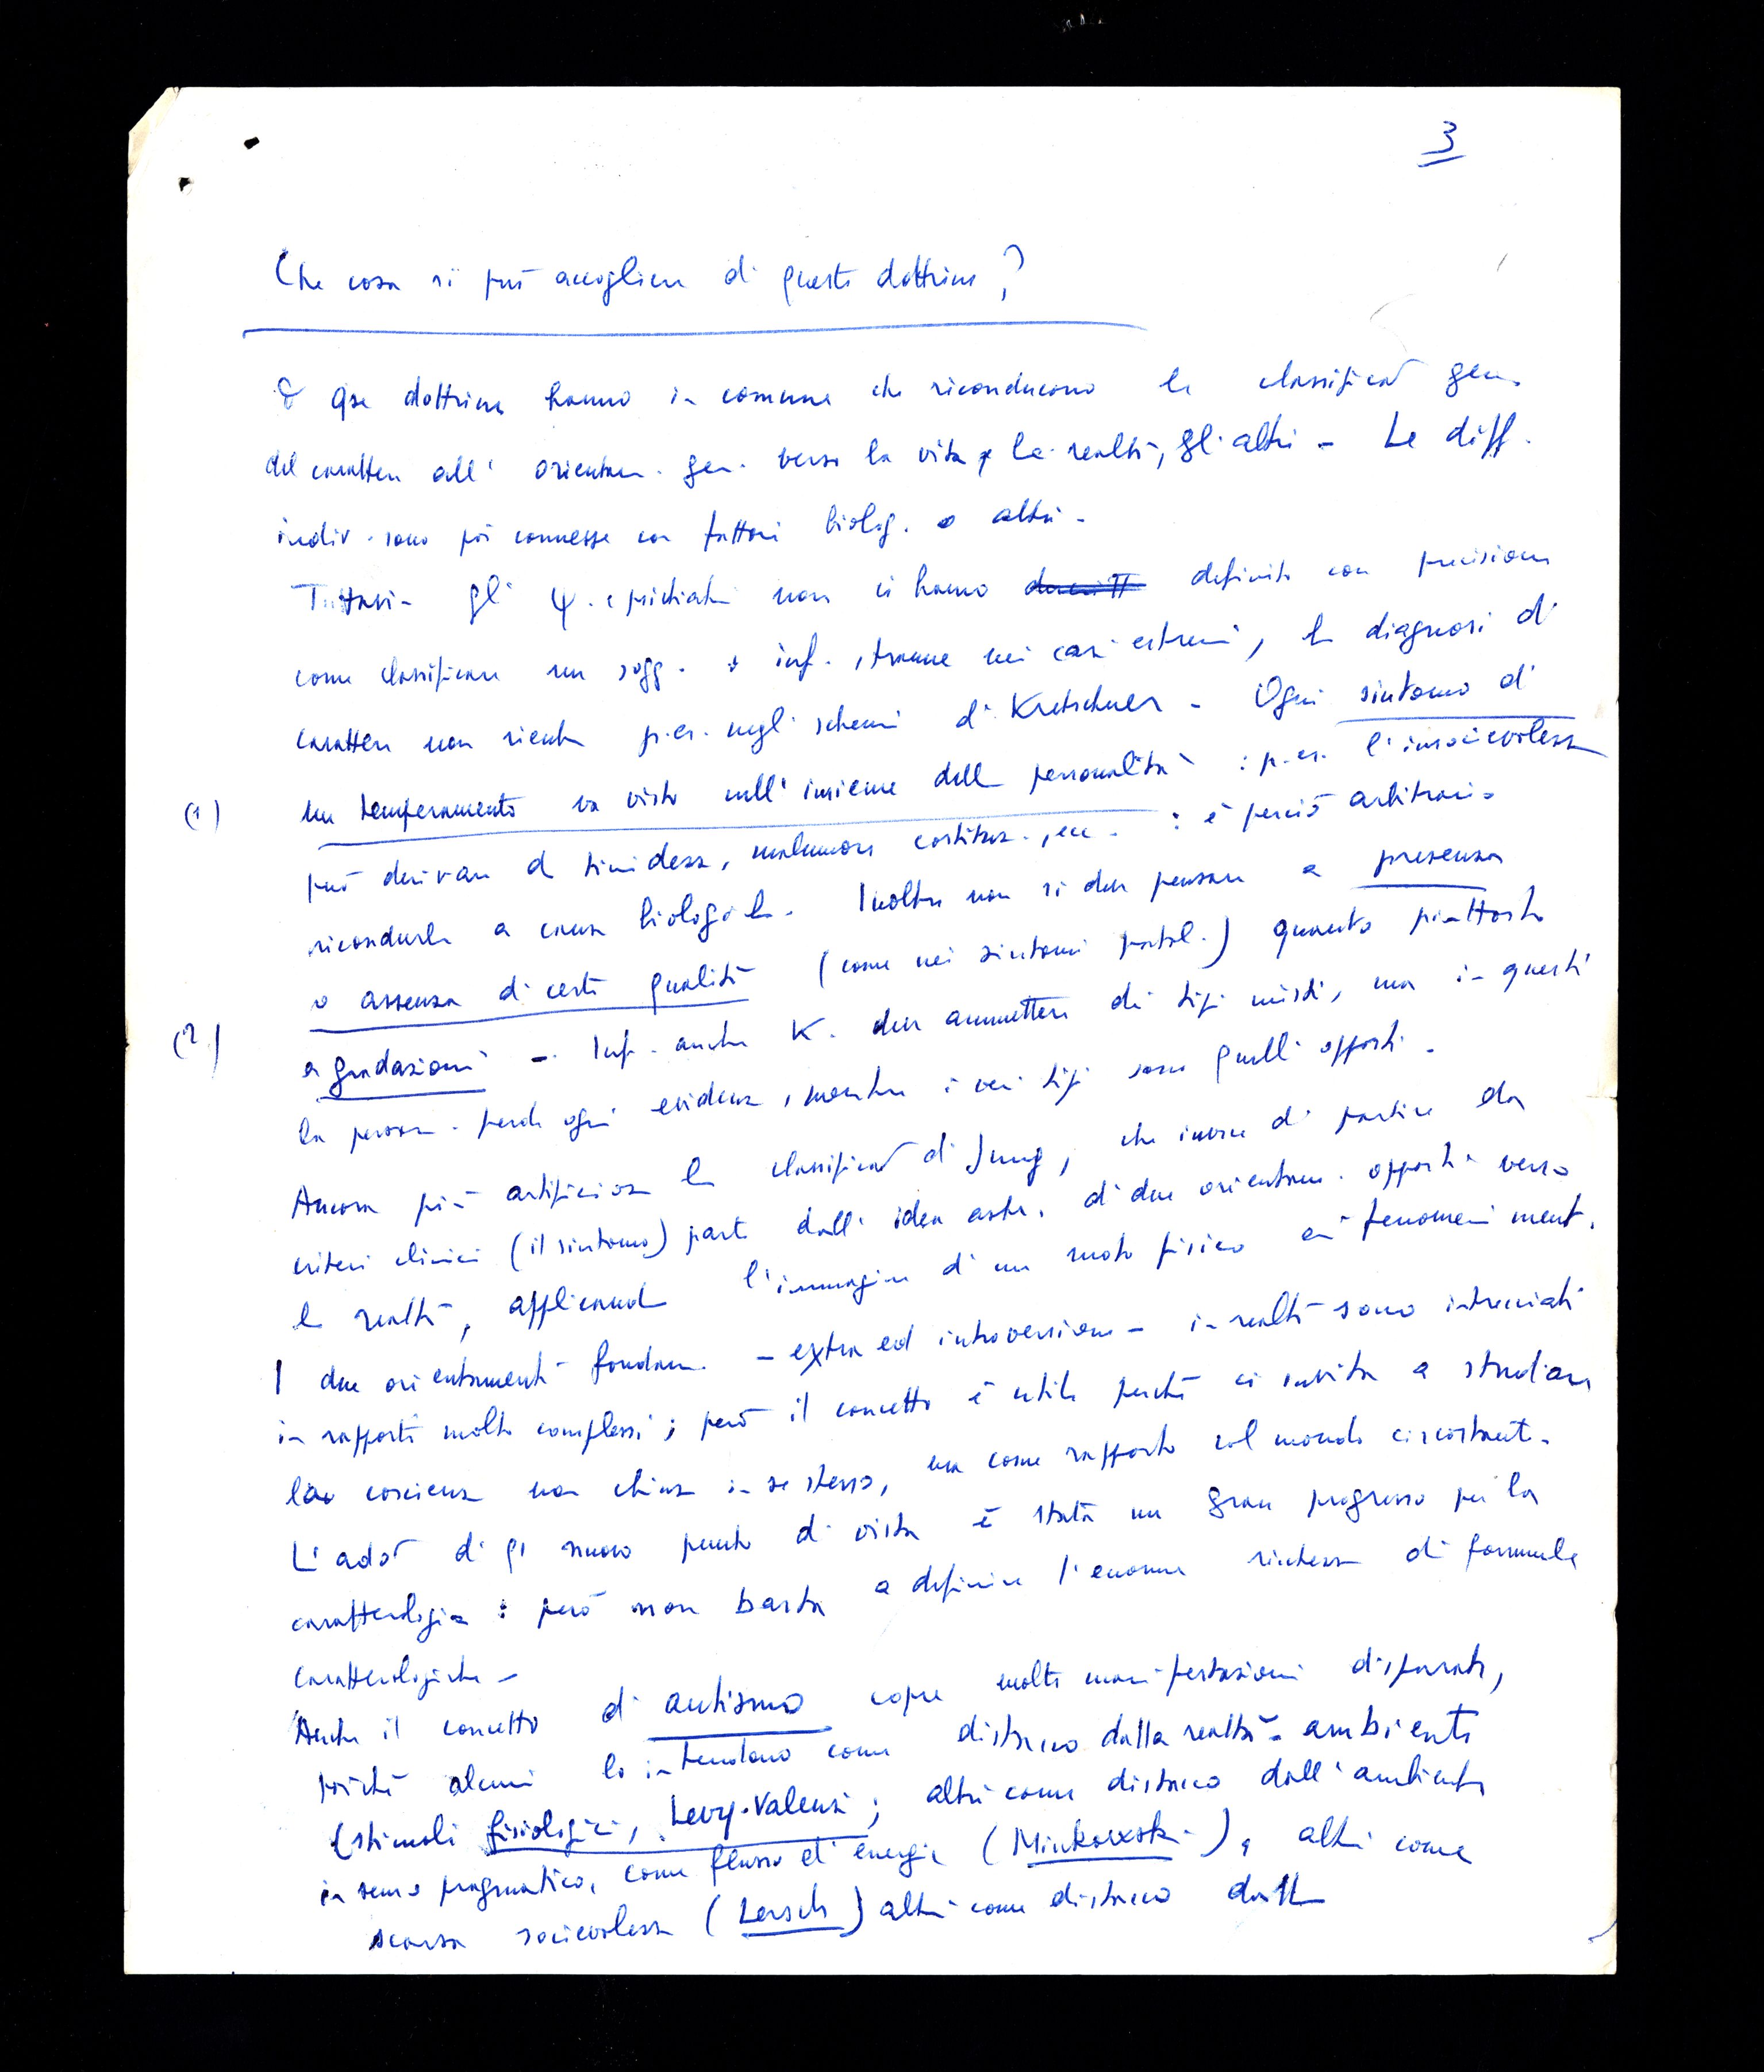 3
Che cosa si può accogliere di queste dottrine?
Qse dottrine hanno in comune che riconducono la classificaz gen.
del carattere all' orientam. gen. verso la vita, la realtà, gli altri - Le diff.
indiv. sono poi connesse con fattori biolog. o altri -
Tuttavia gli ψ. e psichiatri non ci hanno definito con precisione
come classificare un sogg. inf., tranne nei casi estremi, la diagnosi di
carattere non rientra p. es. negli schemi di Kretschmer - Ogni sintomo di
(1) un temperamento va visto nell' insieme della personalità : p. es. l'insocievolezza
può derivare da timidezza, malumore costituz., ecc. : è perciò arbitrario
ricondurla a causa biologica. Inoltre non si deve pensare a presenza
o assenza di certe qualità (come nei sintomi patol.) quanto piuttosto
(2) a gradazioni - Inf. anche K. deve ammettere dei tipi misti, ma in questi
la person. perde ogni evidenza, mentre i veri tipi sono quelli opposti -
Ancora più artificiosa la classificaz di Jung, che invece di partire da
criteri clinici (il sintomo) parte dall' idea astr. di due orientam. opposti verso
la realtà, applicando l'immagine di un moto fisico ai fenomeni ment.
I due orientamenti fondam. - extra ed introversione - in realtà sono intrecciati
in rapporti molto complessi; però il concetto è utile perché ci invita a studiare
la coscienza non chiusa in se stessa, ma come rapporto col mondo circostante -
L' adoz di qs nuovo punto di vista è stato un gran progresso per la
caratterologia : però non basta a definire l'enorme ricchezza di formule
caratterologiche -
Anche il concetto di autismo copre molte manifestazioni disparate,
poiché alcuni lo intendono come distacco dalla realtà-ambiente
(stimoli fisiologici, Levy-Valensi; altri come distacco dall' ambiente
in senso pragmatico, come flusso di energia (Minkowski), altri come
scarsa socievolezza (Lersch) altri come distacco dalla